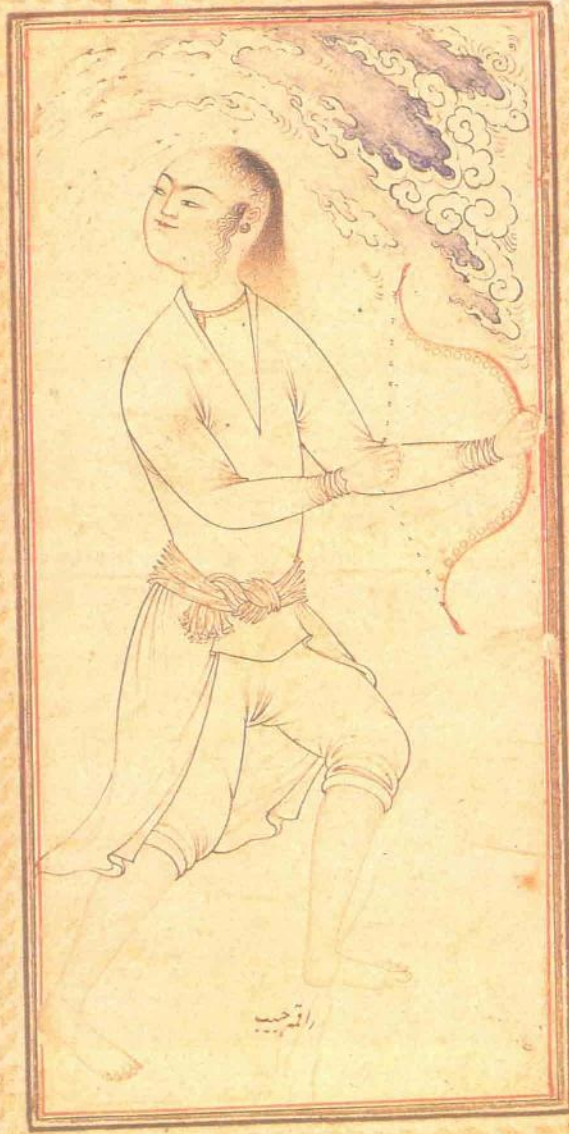 راقمه حبیب